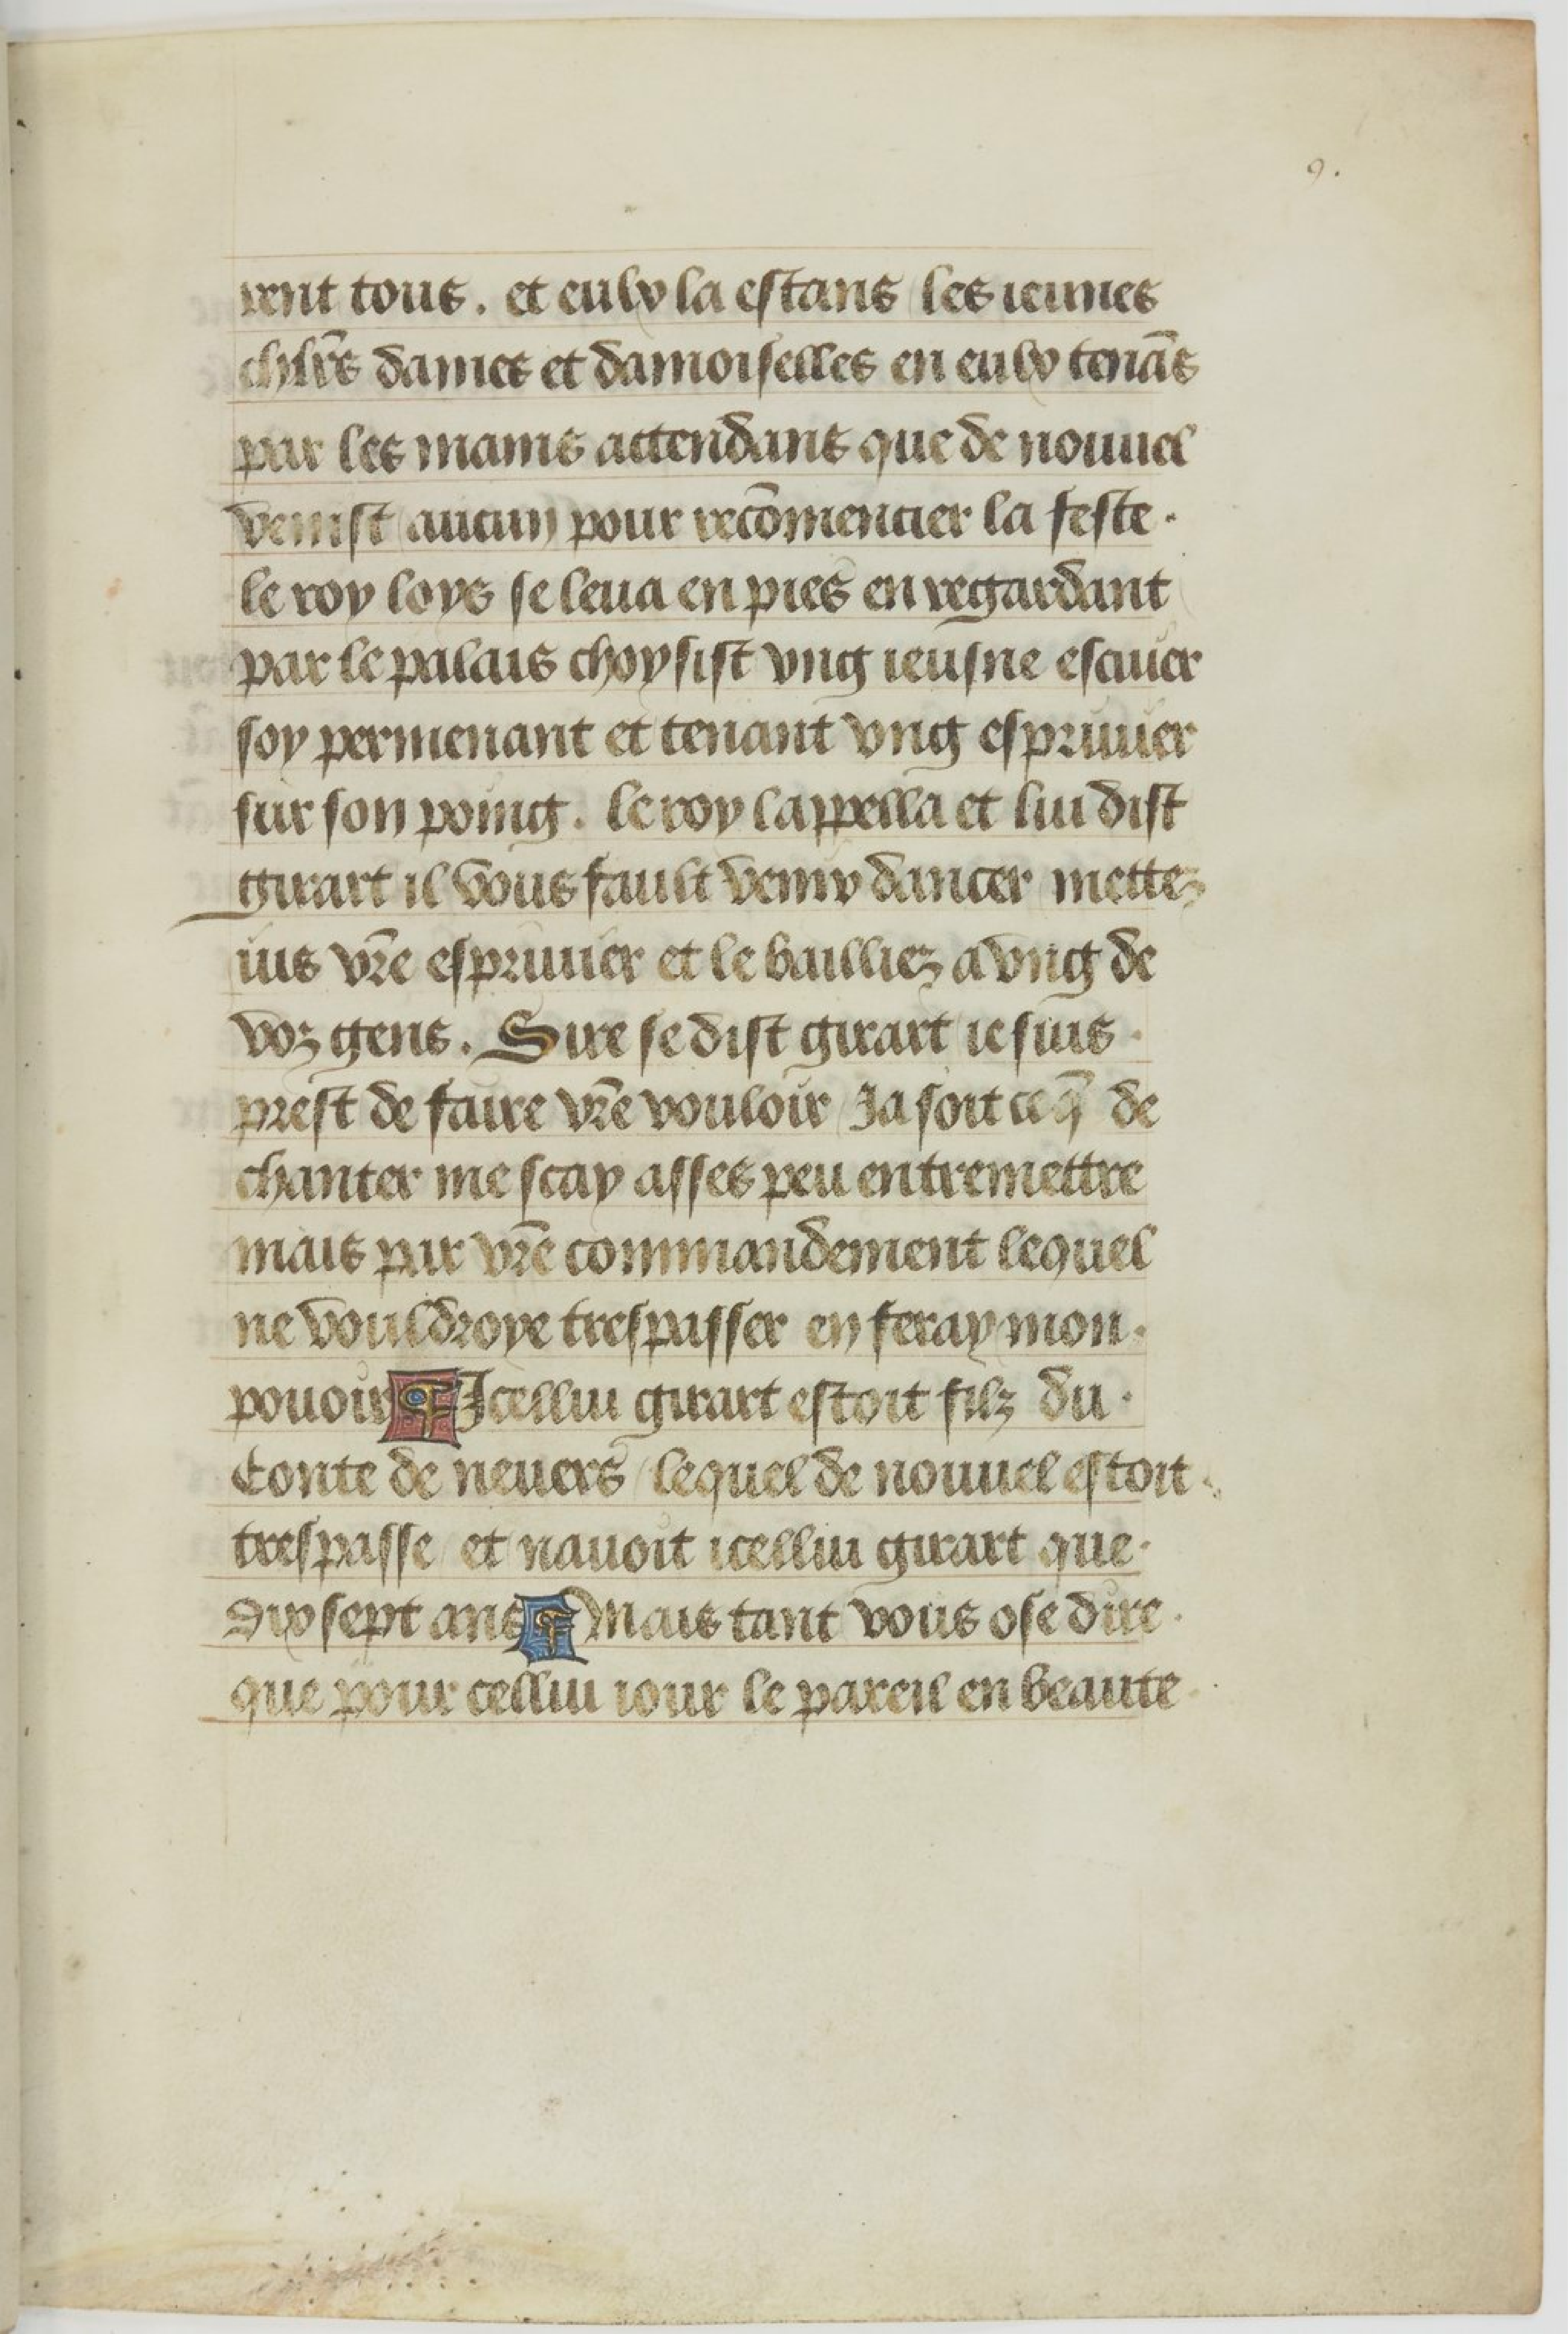 9.
rent tous . et eulx la estans les ieunes
chlr̄s dames et damoiselles en eulx tenās
par les mains attendans que de nouuel
venist aucun pour recōmencier la feste .
le roy loys se leua en pies en regardant
par le palais choysist vng ieusne escuier
soy permenant et tenant vng espriuier
sur son poing . le roy lappella et lui dist
girart il vous fault venir dancer mettez
ius vr̄e espriuier et le bailliez a vng de
voz gens . Sire se dist girart ie suis .
prest de faire vr̄e vouloir Ja soit ce q̄ de
chanter me scay asses peu entremettre
mais par vr̄e commandement lequel
ne vouldroye trespasser en feray mon .
pouoir ¶ Icellui girart estoit filz du .
Conte de neuers lequel de nouuel estoit .
trespasse et nauoit icellui girart que .
Dixsept ans ¶ Mais tant vous ose dire .
que pour cellui iour le pareil en beaute .